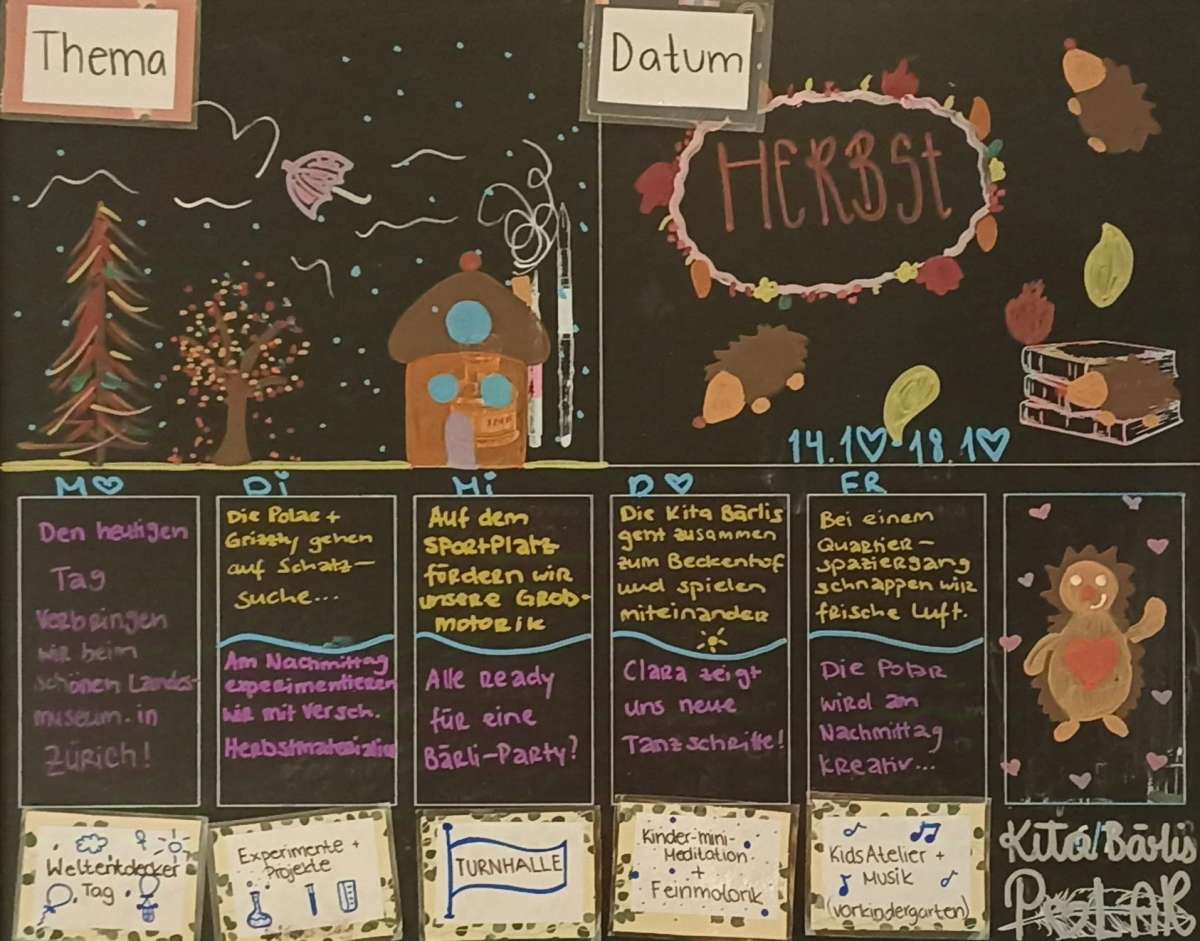 Thema
Datum
HERBSt
14.1♡ - 18.1♡
M♡
Den heutigen
Tag
verbringen
wir beim
schönen Landes-
museum in
Zürich!
Di
Die Polar +
Grizzly gehen
auf Schatz-
suche...
Am Nachmittag
experimentieren
wir mit versch.
Herbstmaterialien
Mi
Auf dem
Sportplatz
fördern wir
unsere Grob-
motorik
Alle ready
für eine
Bärli-Party?
D♡
Die Kita Bärlis
geht zusammen
zum Beckenhof
und spielen
miteinander
Clara zeigt
uns neue
Tanzschritte!
FR
Bei einem
Quartier-
spaziergang
schnappen wir
frische Luft.
Die Polar
wird am
Nachmittag
kreativ...
Weltentdecker
Tag
Experimente +
Projekte
TURNHALLE
Kinder-mini-
Meditation
+
Feinmotorik
Kids Atelier +
Musik
(Vorkindergarten)
Kita Bärlis
PoLAR